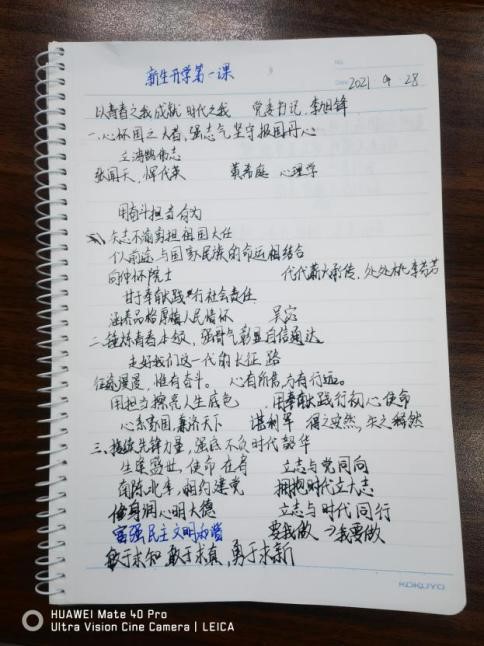 新生开学第一课
NO.
DATE 2021 9 28
以青春之我成就时代之我 党委书记 李旭锋
一.心怀国之大者,强志气坚守报国丹心
立鸿鹄伟志
张闻天,恽代英 黄希庭 心理学
用奋斗担当有为
矢志不渝勇担祖国大任
个人前途与国家民族的命运相结合
向仲怀院士 代代薪火相传,处处桃李芬芳
甘于奉献践行社会责任
涵养品格厚植人民情怀 吴宓
二.锤炼青春本领,强骨气彰显自信通达
走好我们这一代的长征路
征途漫漫,惟有奋斗。 心有所信,方有行远。
用担当擦亮人生底色 用奉献践行初心使命
心系家国兼济天下 谌利军 得之安然,失之释然
三.接续先锋力量,强底不负时代韶华
生逢盛世,使命在肩 立志与党同向
南陈北李,相约建党 拥抱时代立大志
修身润心明大德 立志与时代同行
富强民主文明和谐 要我做→我要做
敏于求知 敢于求真,勇于求新
KOKUYO
HUAWEI Mate 40 Pro
Ultra Vision Cine Camera | LEICA